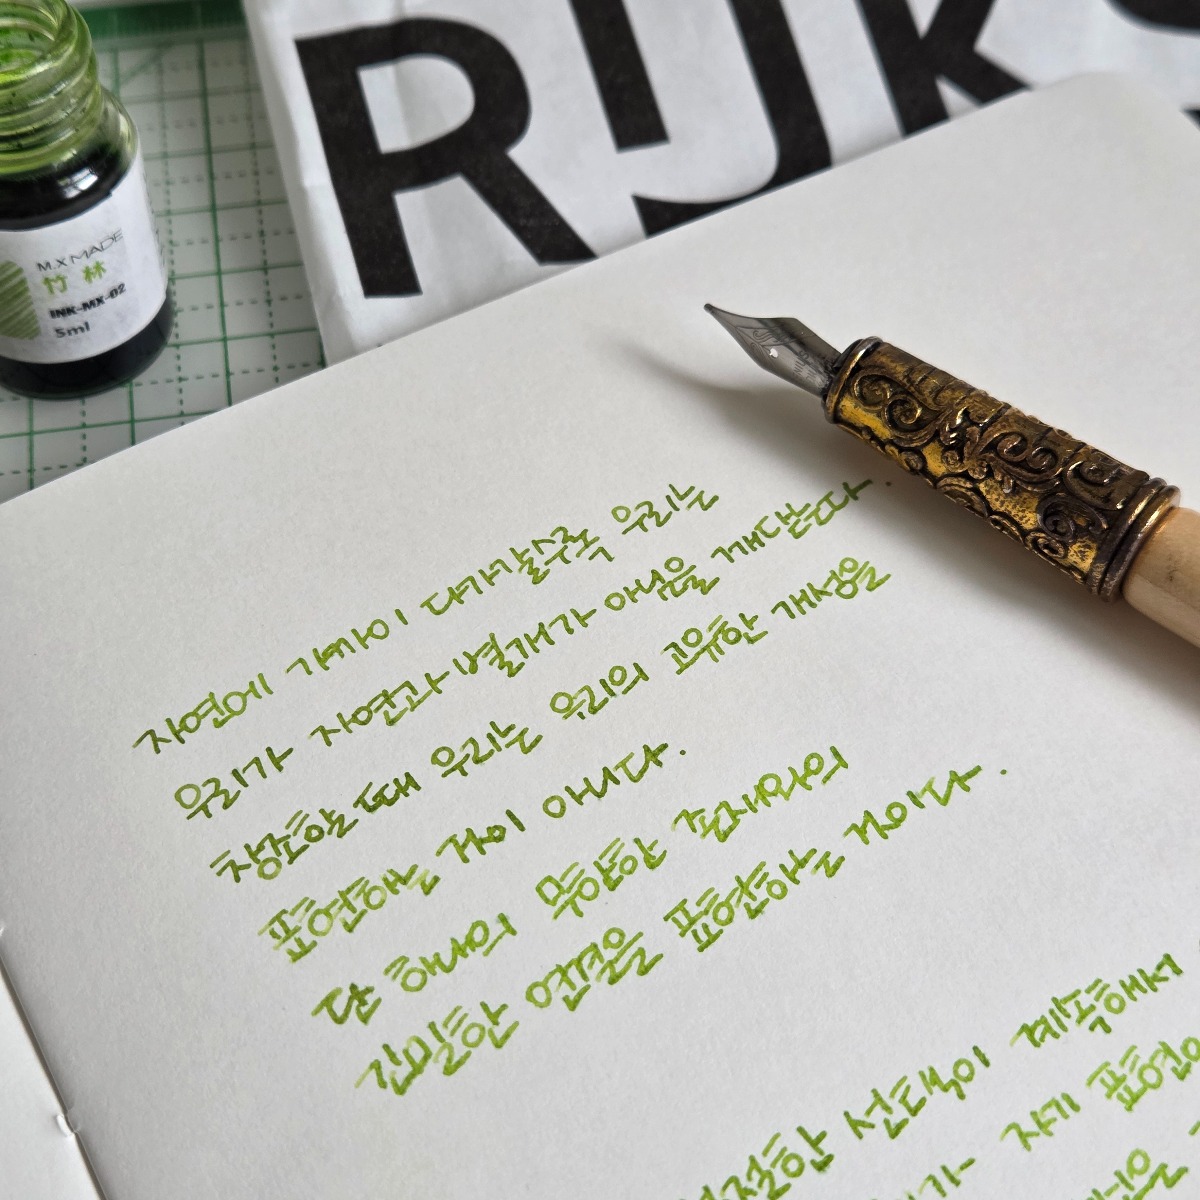 RIJKS
M.X MADE
竹林
INK-MX-02
5ml
자연에 가까이 다가갈수록 우리는
우리가 자연과 별개가 아님을 깨닫는다.
창조할 때 우리는 우리의 고유한 개성을
표현하는 것이 아니다.
단 하나의 무한한 존재와의
긴밀한 연결을 표현하는 것이다.
적절한 선택이 계속해서
자기 표현